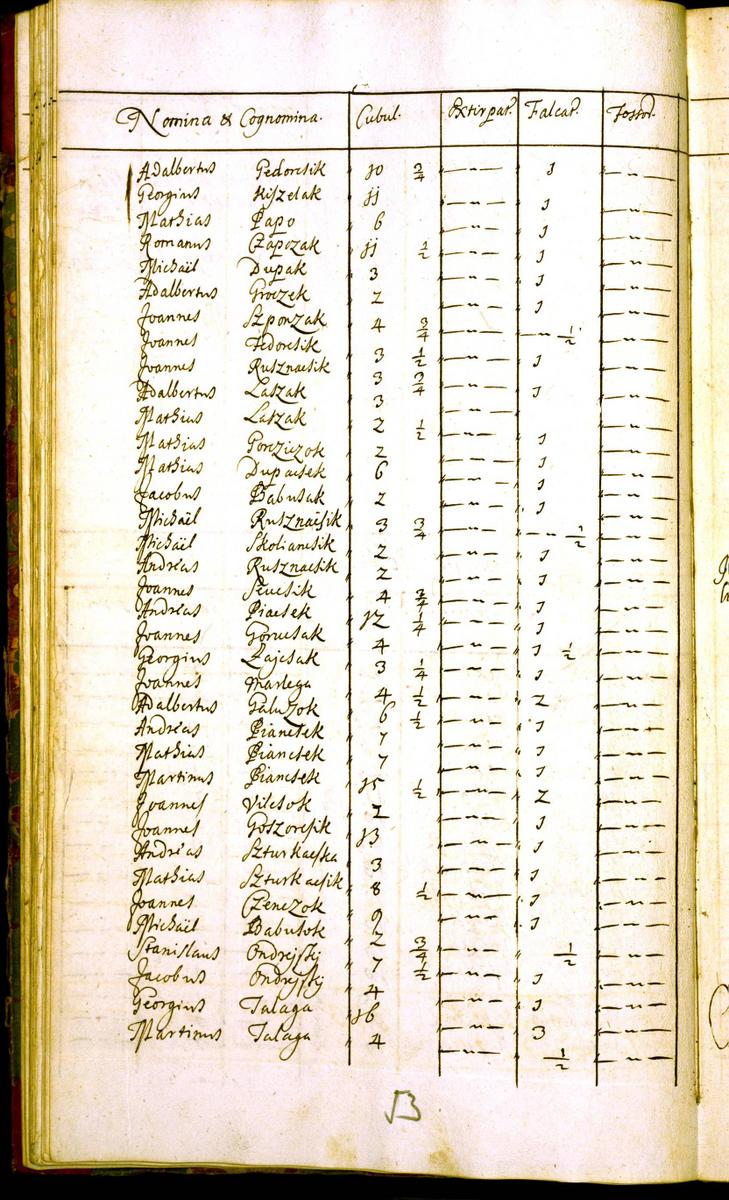 Nomina & Cognomina. Cubul. Extirpat. Falcat. Fossor.
Adalbertus Fedorcsik 10 3/4 — " — 1 — " —
Georgius Kiszelak 11 — " — 1 — " —
Mathias Papo 6 — " — 1 — " —
Romanus Czapczak 11 1/2 — " — 1 — " —
Michaël Dupak 3 — " — 1 — " —
Adalbertus Groczek 2 — " — 1 — " —
Joannes Szponzak 4 3/4 — " — — " 1/2 — " —
Joannes Fedorcsik 3 1/2 — " — 1 — " —
Joannes Rusznacsik 3 3/4 — " — 1 — " —
Adalbertus Laszak 3 — " — — " —
Mathias Laszak 2 1/2 — " — 1 — " —
Mathias Porcziczok 2 — " — 1 — " —
Mathias Dupacsek 6 — " — 1 — " —
Jacobus Babusak 2 — " — 1 — " —
Michaël Rusznacsik 3 3/4 — " — — " 1/2 — " —
Michaël Skoliancsik 2 — " — 1 — " —
Andreas Rusznacsik 2 — " — 1 — " —
Joannes Sevcsik 4 3/4 — " — 1 — " —
Andreas Piacsek 12 1/4 — " — 1 — " —
Joannes Gorucsak 4 — " — 1 1/2 — " —
Georgius Zajcsak 3 1/4 — " — 1 — " —
Joannes Marhega 4 1/2 — " — 2 — " —
Adalbertus Galuzok 6 1/2 — " — 1 — " —
Andreas Biancsek 7 — " — 1 — " —
Mathias Biancsek 7 — " — 1 — " —
Martinus Biancsek 15 1/2 — " — 2 — " —
Joannes Vilcsok 2 — " — 1 — " —
Joannes Goszorcsik 13 — " — 1 — " —
Andreas Szturkacska 3 — " — 1 — " —
Mathias Szturkacsik 8 1/2 — " — 1 — " —
Joannes Czenczok 9 — " — 1 — " —
Michaël Babusok 2 3/4 — " — 1/2 — " —
Stanislaus Ondrejszkij 7 1/2 — " — 1 — " —
Jacobus Ondrejszkij 4 — " — 1 — " —
Georgius Talaga 16 — " — 3 — " —
Martinus Talaga 4 — " — 1/2 — " —
53